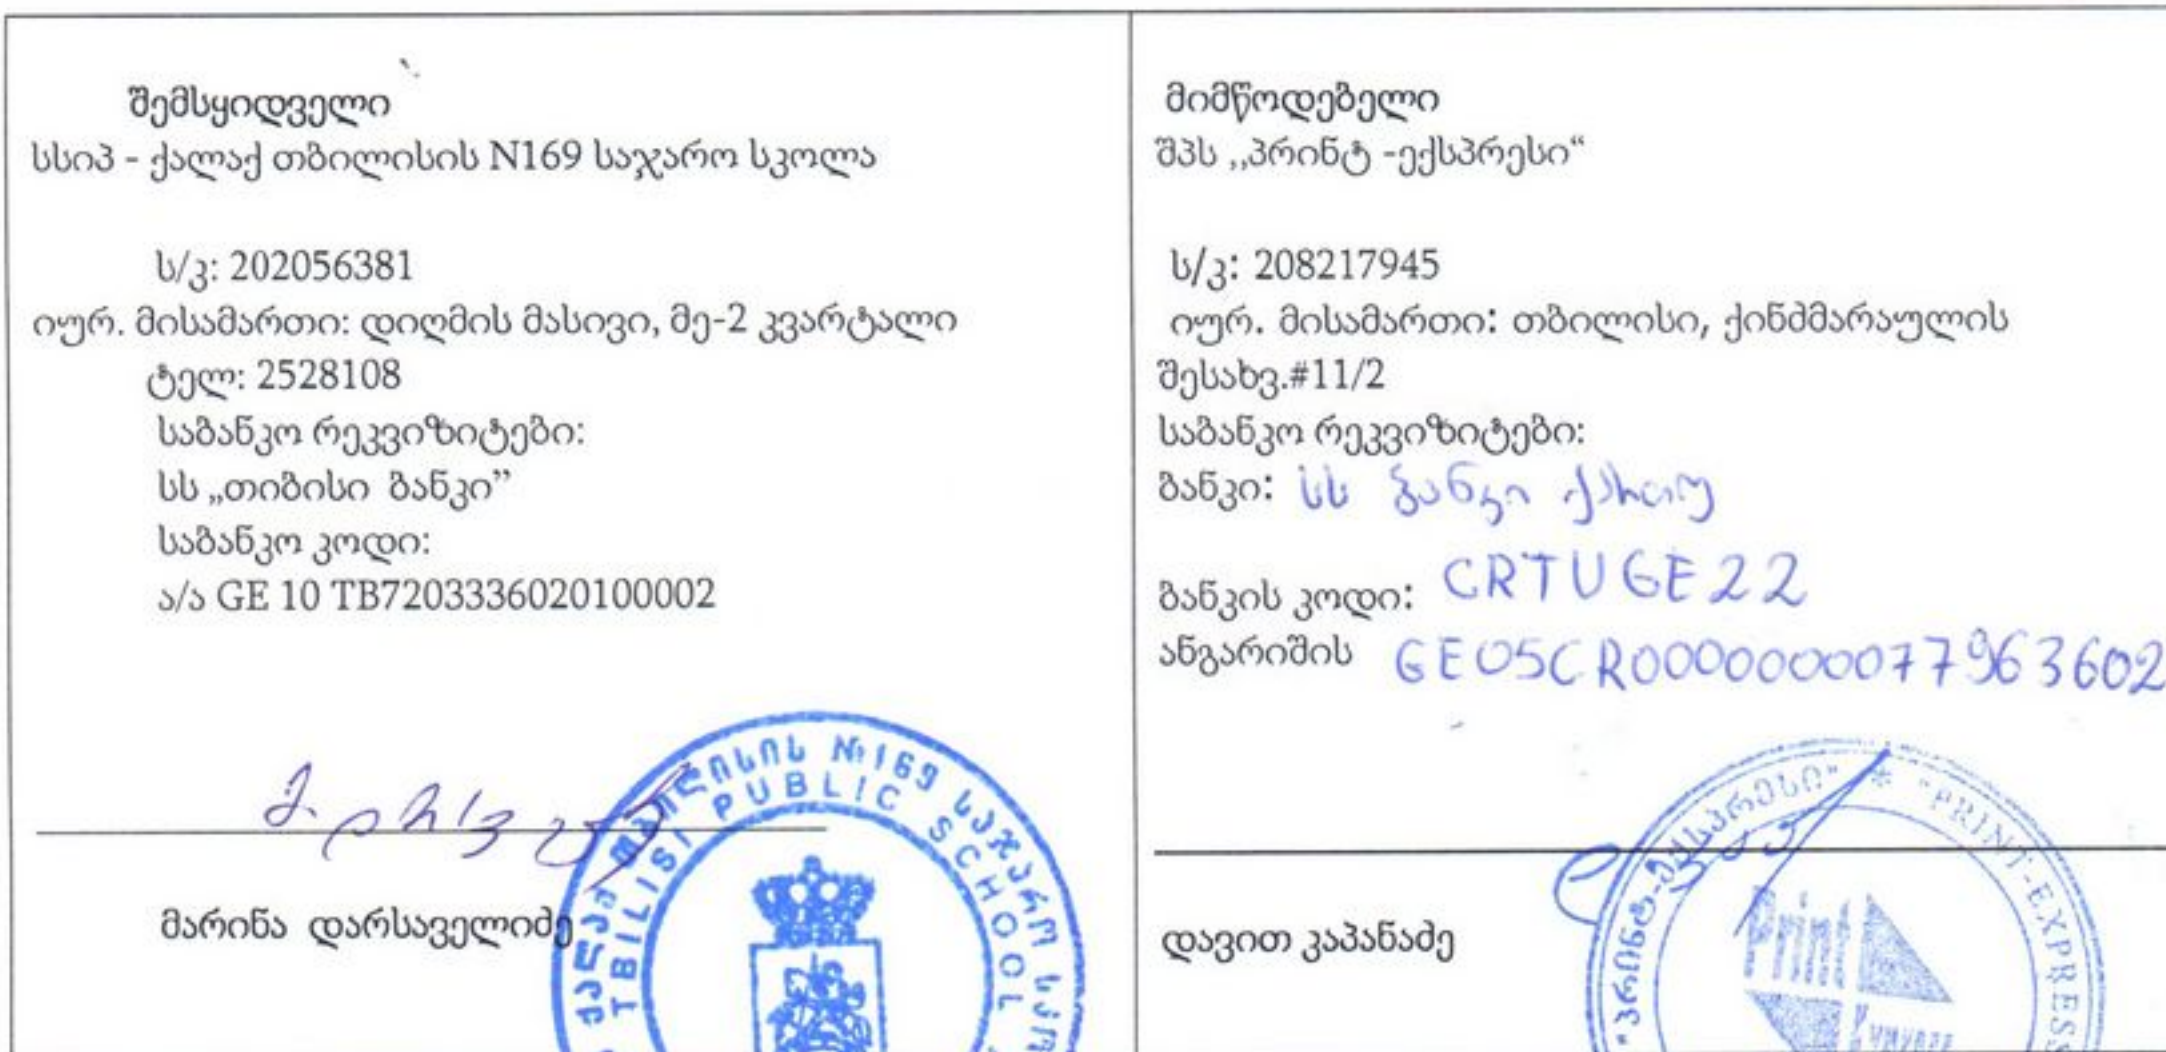 შემსყიდველი
სსიპ - ქალაქ თბილისის N169 საჯარო სკოლა
ს/კ: 202056381
იურ. მისამართი: დიღმის მასივი, მე-2 კვარტალი
ტელ: 2528108
საბანკო რეკვიზიტები:
სს „თიბისი ბანკი”
საბანკო კოდი:
ა/ა GE 10 TB7203336020100002
მარინა დარსაველიძე
ქალაქ თბილისის №169 საჯარო
TBILISI PUBLIC SCHOOL
მიმწოდებელი
შპს ,,პრინტ -ექსპრესი“
ს/კ: 208217945
იურ. მისამართი: თბილისი, ქინძმარაულის
შესახვ.#11/2
საბანკო რეკვიზიტები:
ბანკი: სს ბანკი ქართუ
ბანკის კოდი: CRTUGE22
ანგარიშის GE05CR000000077963602
დავით კაპანაძე
"პრინტ-ექსპრესი" * "PRINT-EXPRESS
Print